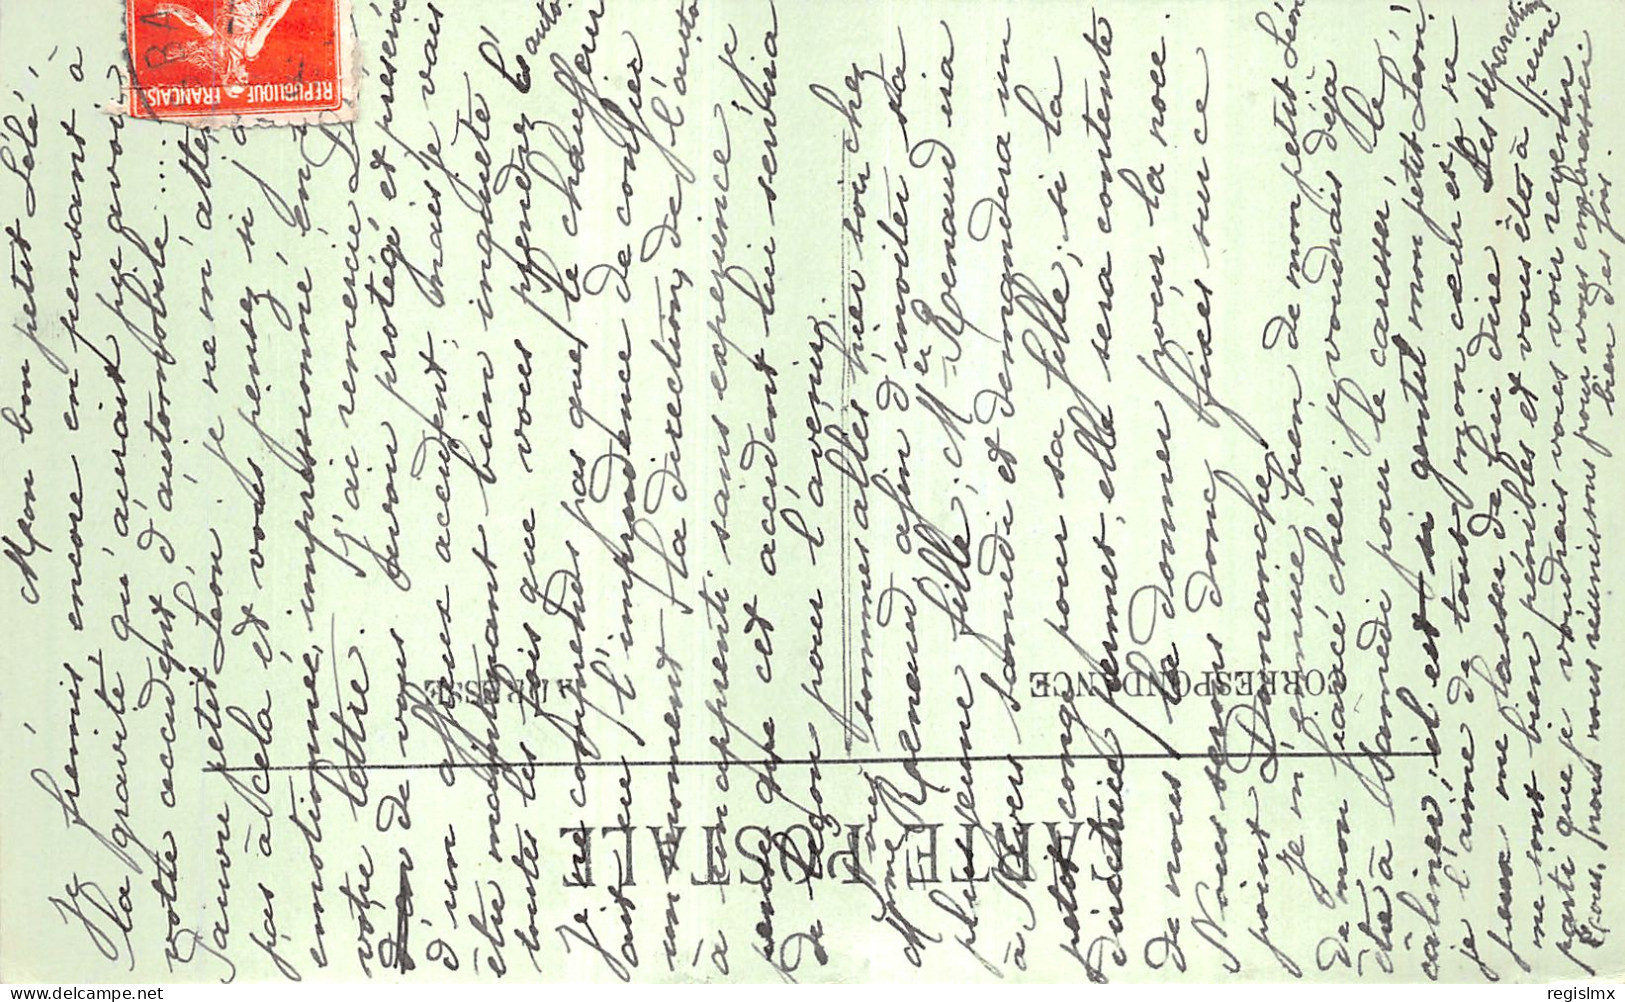 Mon bon petit Lélé,
Je frémis encore en pensant à
la gravité qu'aurait pu avoir
votre accident d'automobile.....
Pauvre petit Léon, je ne m'atten
pas à cela et vous pensez si j'
émotionnée, impressionnée en
votre lettre. J'ai remercié
de vous avoir protégé et préservé
d'un affreux accident, mais je vais
être maintenant bien inquiète
toutes les fois que vous prendrez l'auto.
Je ne comprends pas que le chauffeur
ait eu l'imprudence de confier
un moment la direction de l'auto
à un apprenti sans expérience, je
pense que cet accident lui servira
de leçon pour l'avenir.
Nous sommes allés hier soir chez
Mme Renaud afin d'inviter sa
plus jeune fille, Mr Renaud ira
à Nvers samedi et demandera un
petit congé pour sa fille, si la
directrice permet, elle sera contente
de nous la donner pour la noce.
Nous serons donc fixés sur ce
point Dimanche.
Je m'ennuie bien de mon petit Léon
de mon fiancé chéri, je voudrais déjà
être à samedi pour le caresser, le
câliner, il est si gentil mon petit Léon!
je l'aime de tout mon cœur et ne
peux me lasser de lui dire. Les séparations
me sont bien pénibles et vous êtes à peine
parti que je voudrais vous voir revenir
nous nous réunissons pour vous embrasser
bien des fois.
CARTE POSTALE
CORRESPONDANCE
ADRESSE
REPUBLIQUE FRANÇAISE
regislmx
delcampe.net